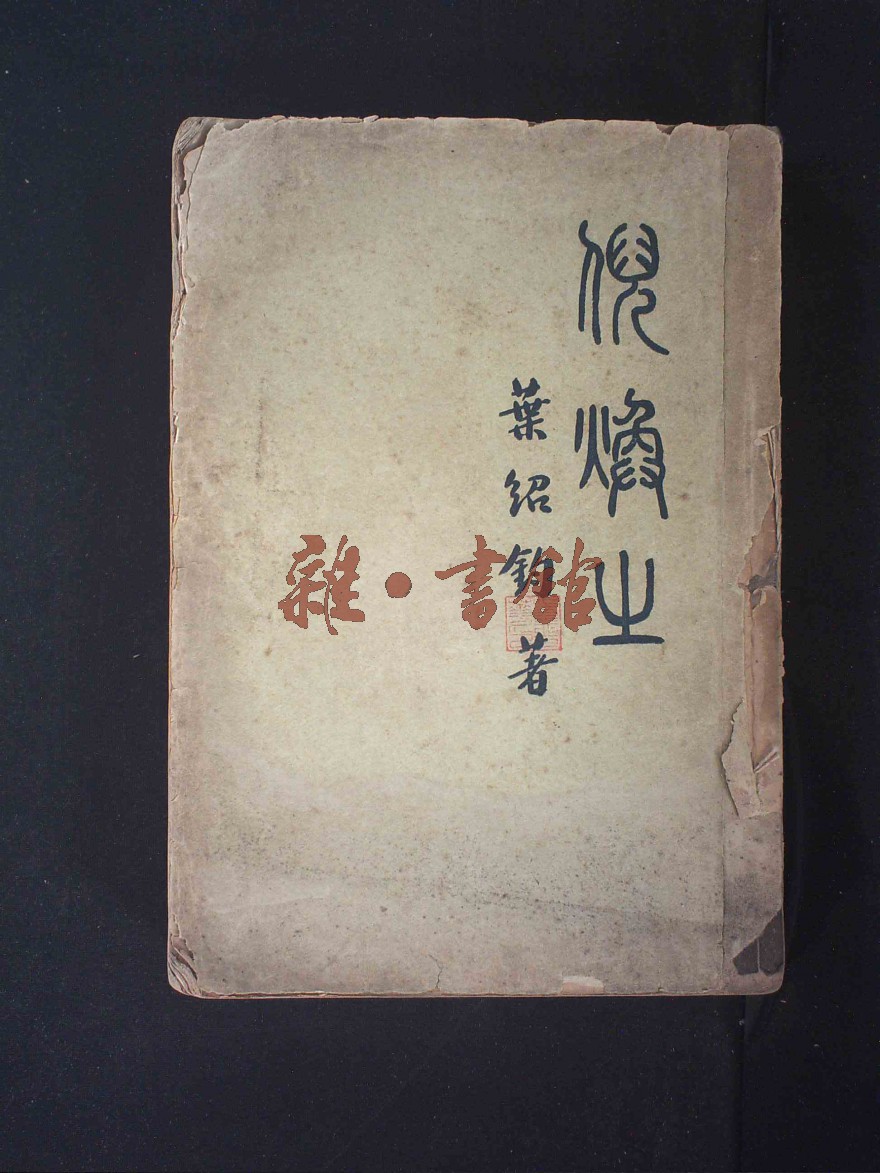 倪煥之
葉紹鈞著
雜·書館